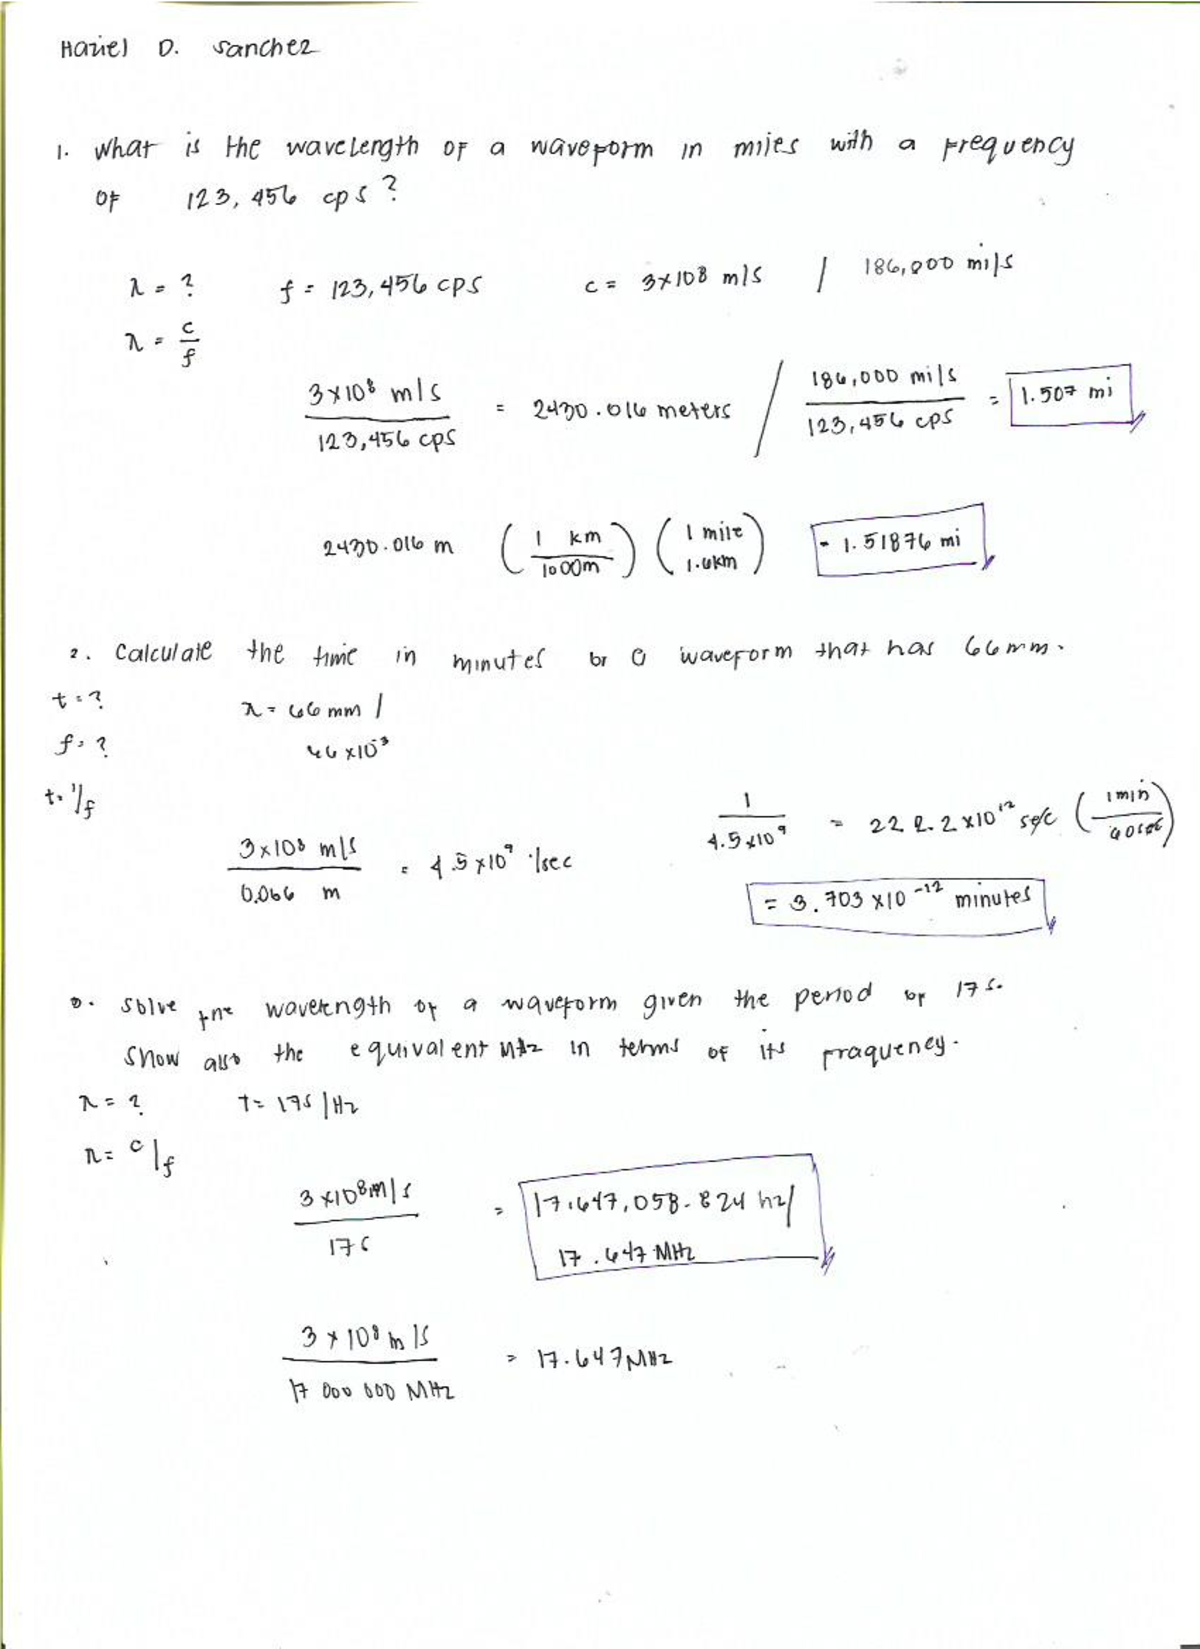 Haziel D. Sanchez
1. What is the wavelength of a waveform in miles with a frequency
of 123,456 cps?
λ = ? f = 123,456 cps c = 3x108 m/s / 186,000 mi/s
λ = c/f
3x10⁸ m/s / 123,456 cps = 2430.016 meters / 186,000 mi/s / 123,456 cps = 1.507 mi
2430.016 m (1 km / 1000m) (1 mile / 1.6km) = 1.51876 mi
2. Calculate the time in minutes of a waveform that has 66mm.
t = ? λ = 66 mm /
f = ? 66 x10⁻³
t = 1/f
3x10⁸ m/s / 0.066 m = 4.5x10⁹ /sec 1 / 4.5x10⁹ = 222.2x10¹² sec (1 min / 60sec)
= 3.703 x10⁻¹² minutes
3. Solve the wavelength of a waveform given the period of 17 s.
Show also the equivalent MHz in terms of its fraquency.
λ = ? T = 17s / Hz
λ = c/f
3 x10⁸ m/s / 17 s = 17,647,058.824 hz/
17.647 MHz
3 x 10⁸ m/s / 17 000 000 MHz = 17.647 MHz